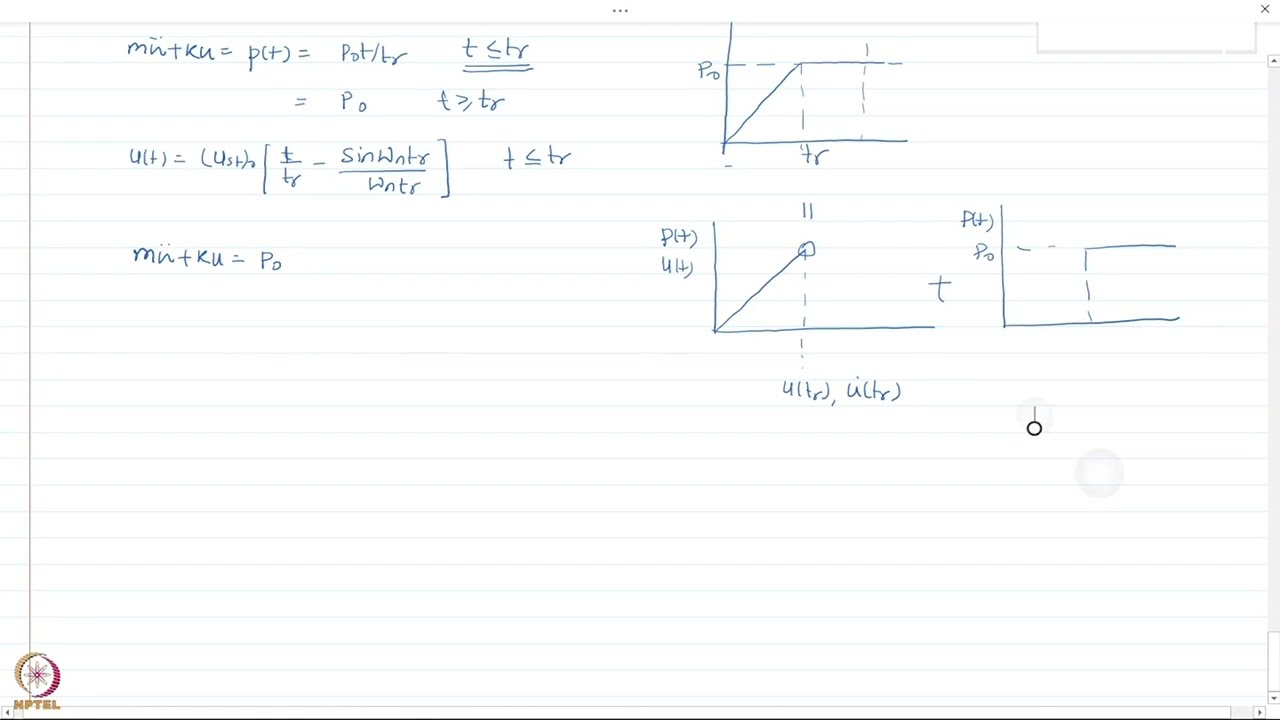 mü+ku = p(t) = P₀t/tr t ≤ tr
= P₀ t ≥ tr
u(t) = (ust)₀ [ t/tr − sinωntr/ωntr ] t ≤ tr
mü+ku = P₀
P₀
tr
P(t)
u(t)
+
P(t)
P₀
u(tr), u̇(tr)
NPTEL